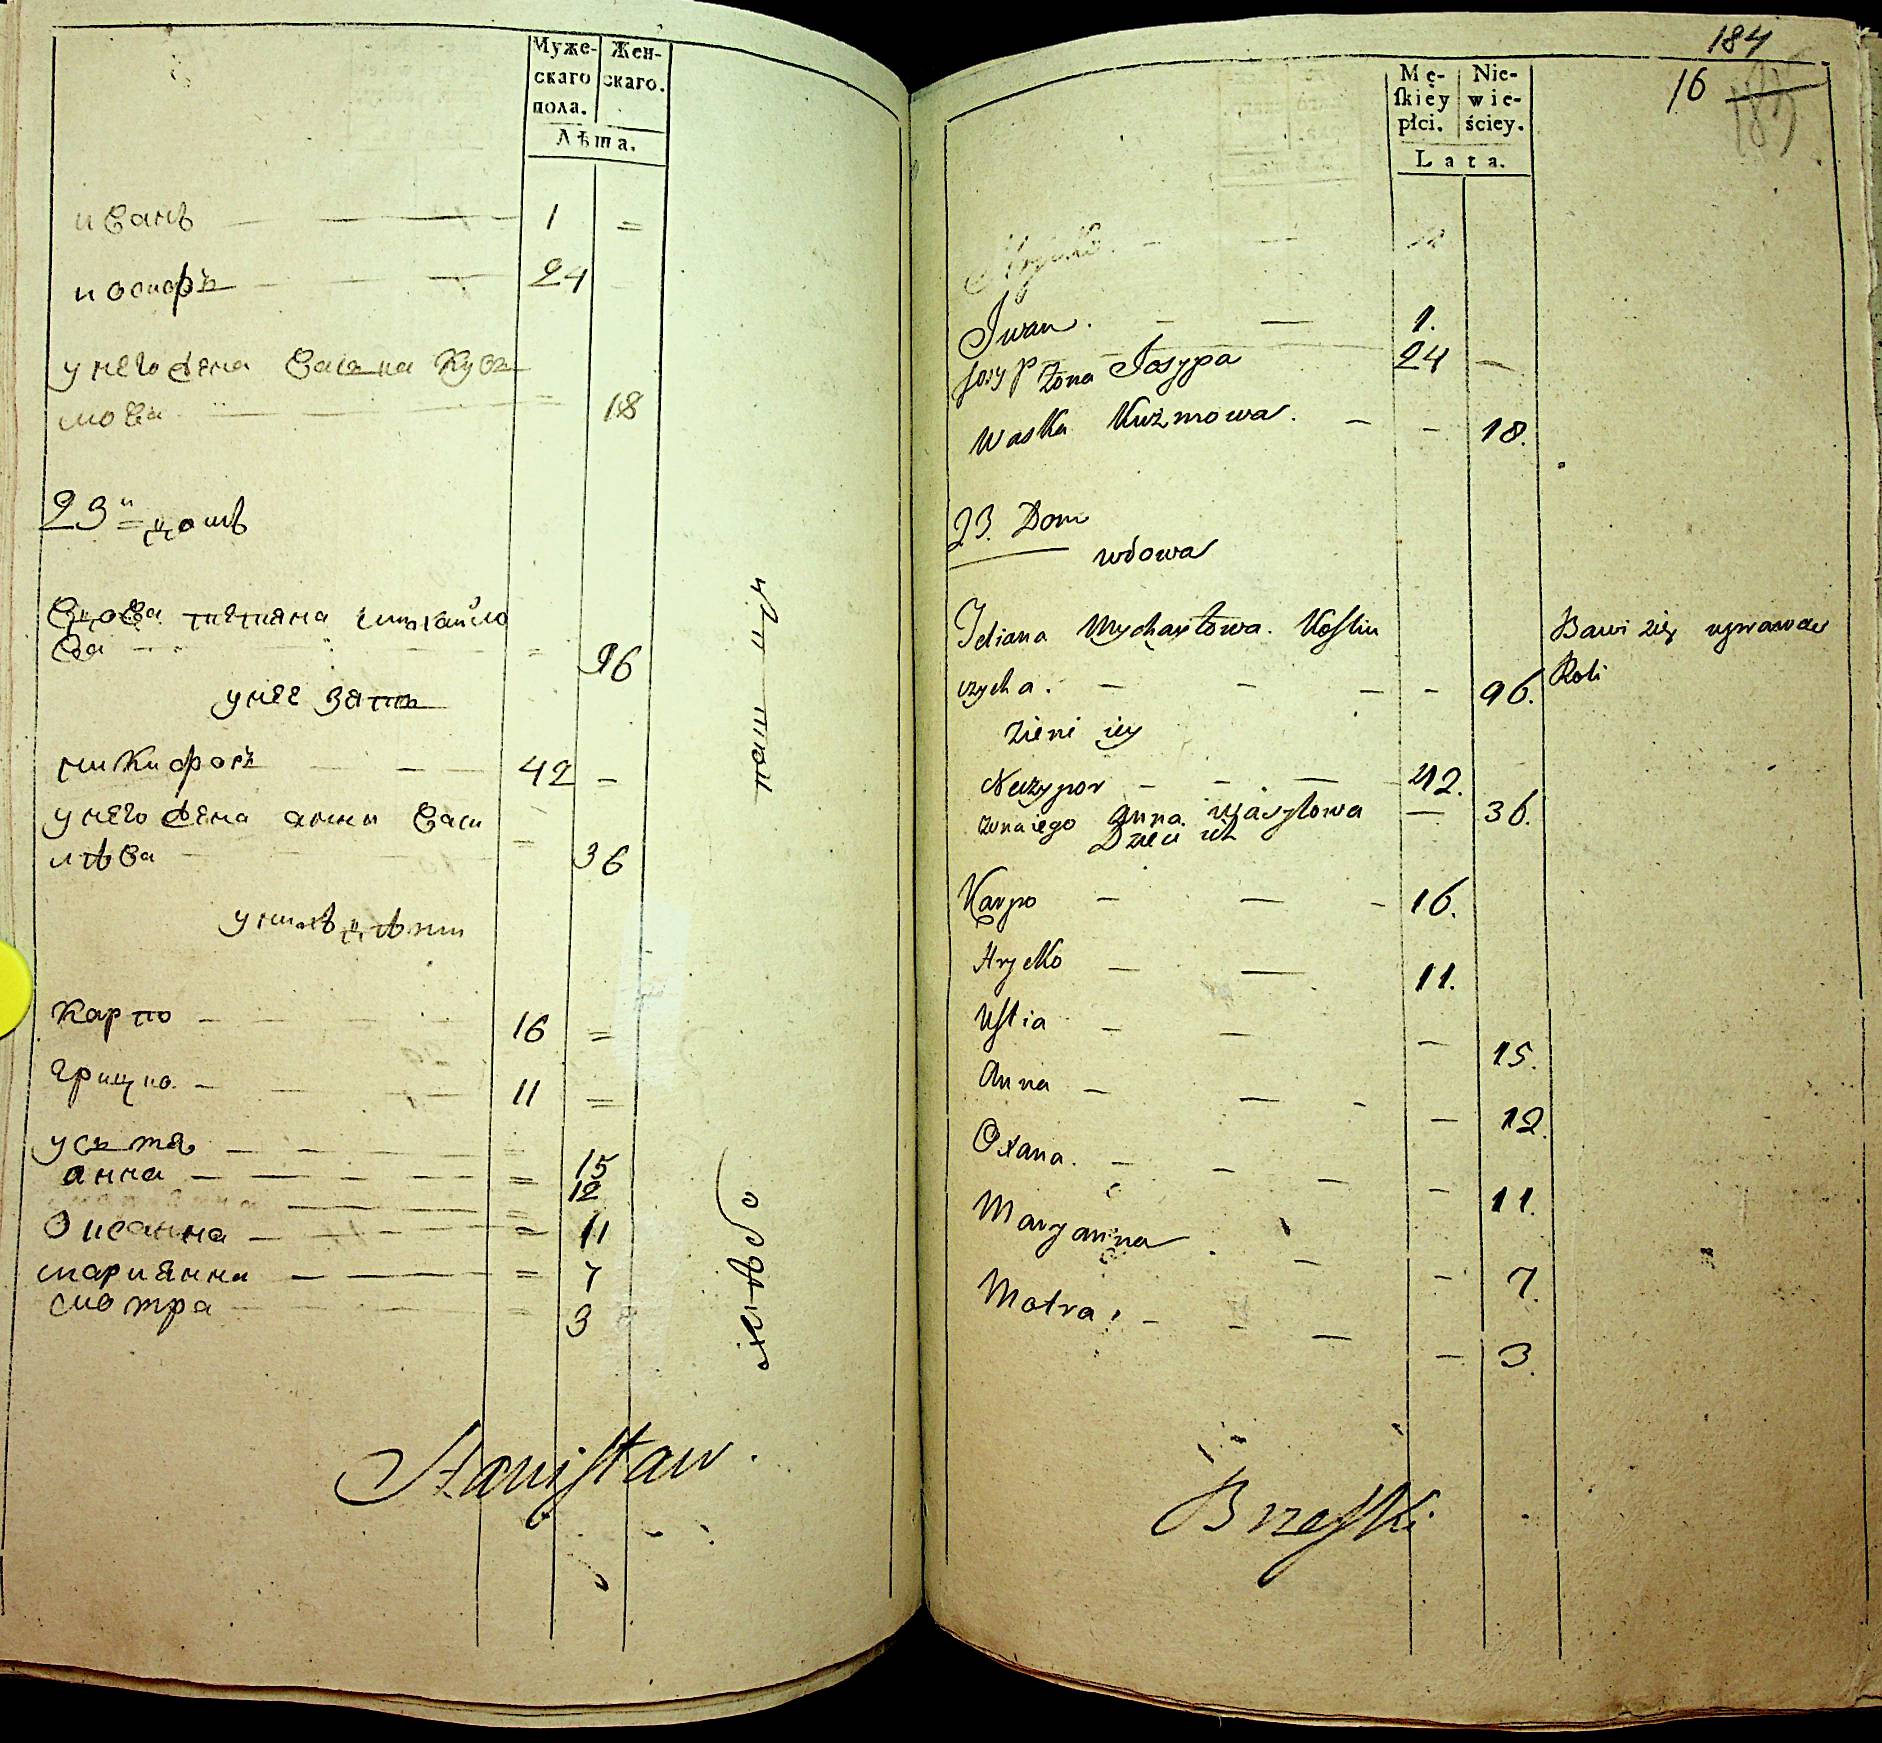 Муже-
скаго
пола.
Жен-
скаго.
Лѣта.
иванъ 1 =
иосифъ 24
унего жена васа на Куз
мова 18
23й домъ
вдова тетяна михайло
ва = 96
унее зять
никифоръ 42 -
унего жена анны васи
лѣва = 36
унихъ дѣти
Карпо 16 =
грицко 11 =
усьтя = 15
анна = 12
Оксанна = 11
мариянна = 7
мотра = 3
хлѣбо
паш
Stanisław.
184
16
Mę-
ſkiey
płci.
Nie-
wie-
ściey.
Lata.
Iwan. 1.
Josyp żona Josypa 24
Waska Kuźmowa. 18.
23. Dom
wdowa
Tetiana Mychayłowa. Koſtiu Bawi się uprawą
czycha. 96. Roli
Neczypor 42.
żona iego Anna. Wasylowa 36.
Dzieci ich
Karpo 16.
Hryćko 11.
Uſtia 15.
Anna 12.
Oxana. 11.
Maryanna. 7.
Motra. 3.
Brzeſki